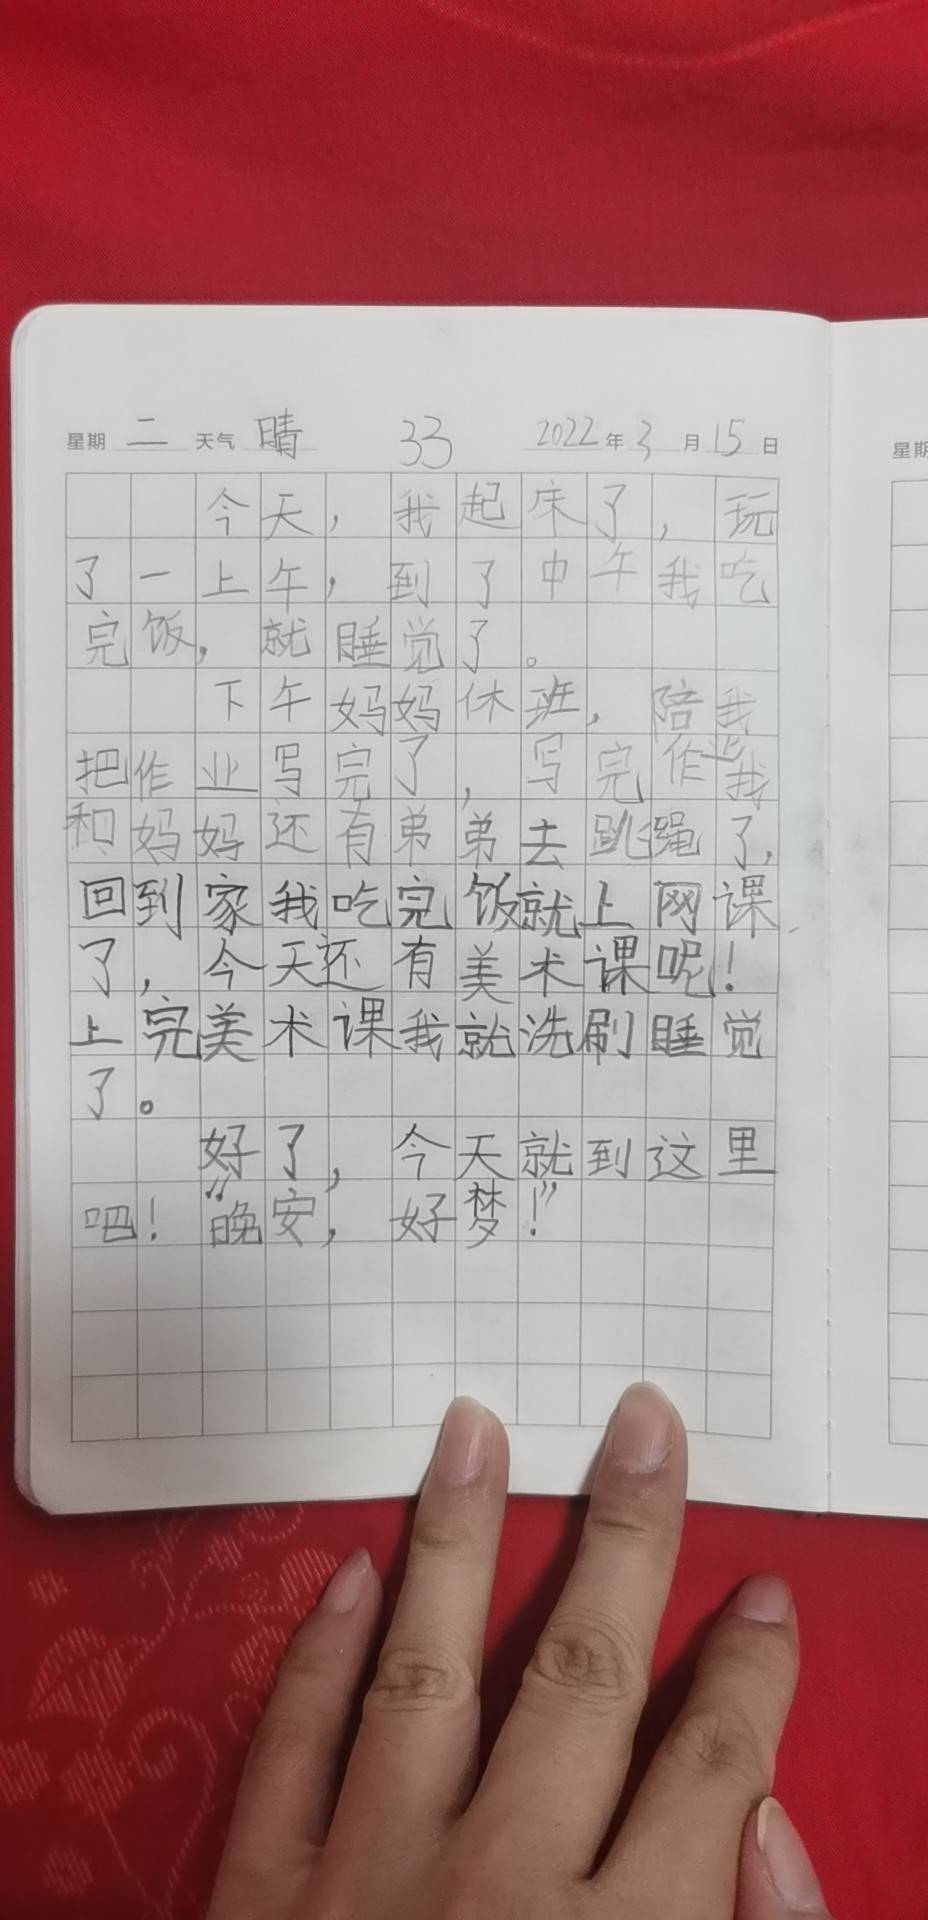 星期 二 天气 晴 33 2022年3月15日 星期
今天，我起床了，玩
了一上午，到了中午我吃
完饭，就睡觉了。
下午妈妈休班，陪我
把作业写完了，写完作业我
和妈妈还有弟弟去跳绳了，
回到家我吃完饭就上网课
了，今天还有美术课呢！
上完美术课我就洗刷睡觉
了。
好了，今天就到这里
吧！“晚安，好梦！”